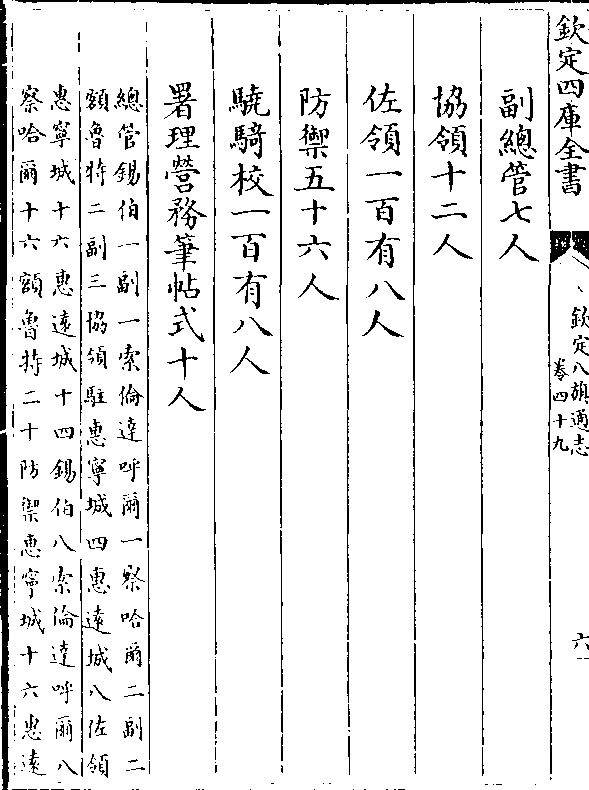 欽定四庫全書
欽定八旗通志
卷四十九
六
副總管七人
協領十二人
佐領一百有八人
防禦五十六人
驍騎校一百有八人
署理營務筆帖式十人
總管錫伯一副一索倫達呼爾一察哈爾二副二
額魯特二副三協領駐惠寧城四惠遠城八佐領
惠寧城十六惠遠城十四錫伯八索倫達呼爾八
察哈爾十六額魯特二十防禦惠寧城十六惠遠